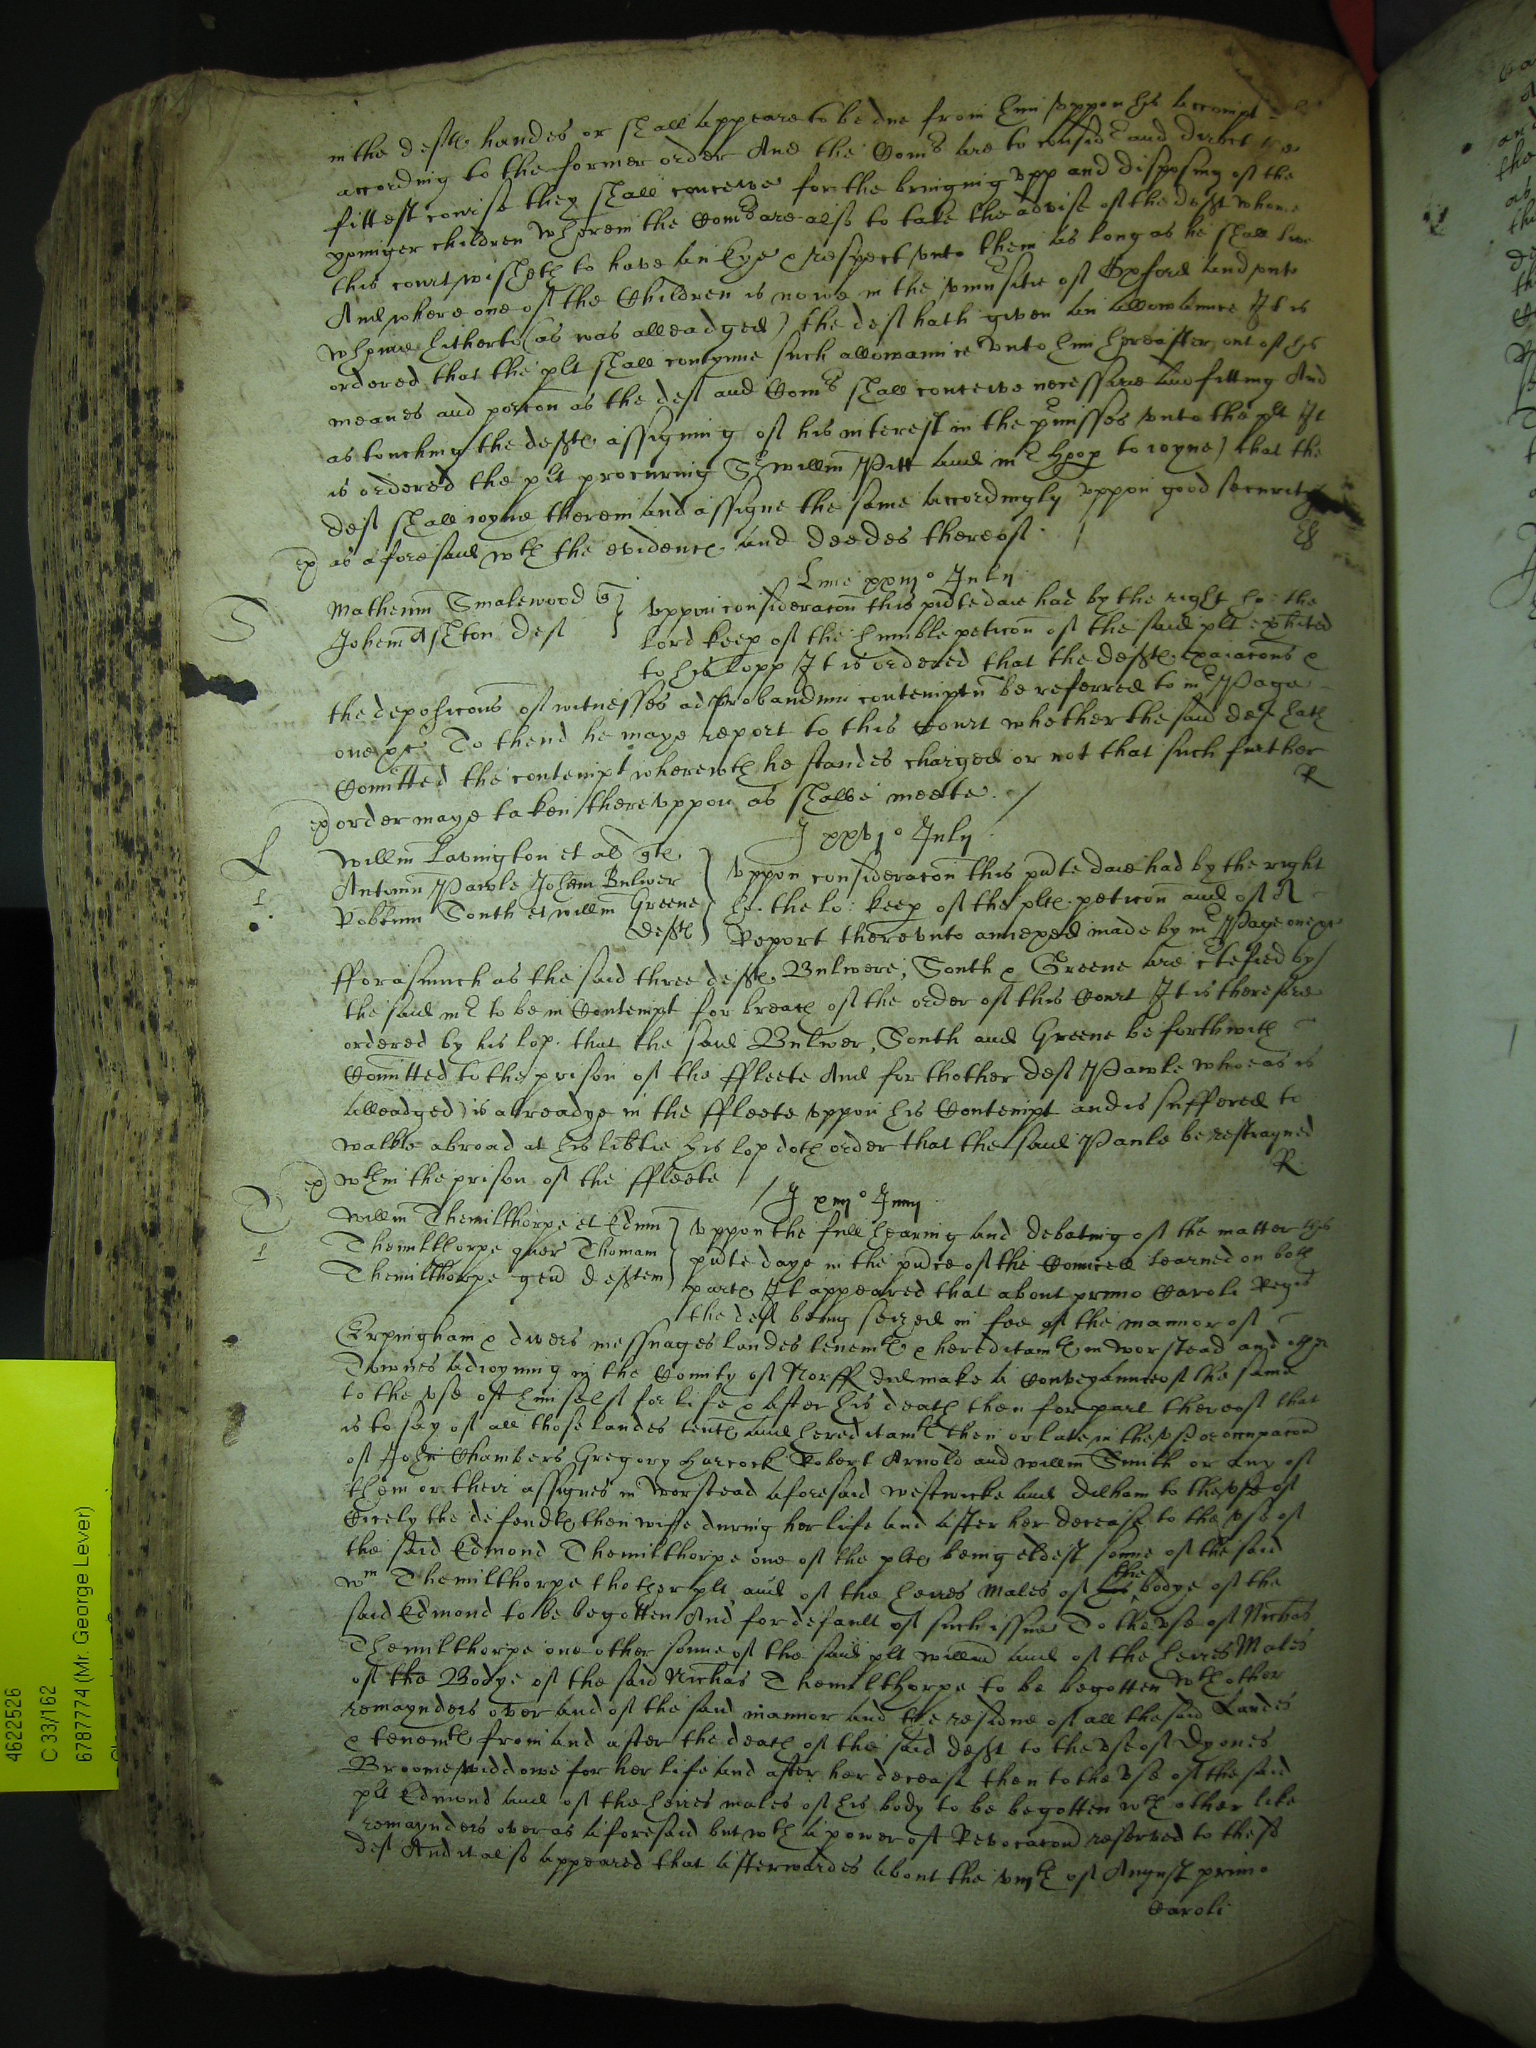 in the deftes handes or shall appeare to be due from him uppon his accompt
according to the former order And the Comrs are to consider and direct the
fittest course they shall conceive for the bringing upp and disposing of the
younger children wherein the Comrs are also to take the advise of the deft whome
this court wisheth to have an Eye & respect unto them as long as he shall live
And where one of the Children is nowe in the university of Oxford and unto
whome hitherto (as was alleadged) the deft hath given an allowance It is
ordered that the plt shall contynue such allowannce unto him hereafter out of his
meanes and porcon as the deft and Comrs shall conceive necessarie and fitting And
as touching the deftes assigning of his interest in the premisses unto the plt It
is ordered the plt procuring Sr Willm Pitt and mr to ioyne) that the
deft shall ioyne therein and assigne the same accordingly uppon good security
ex as aforesaid wth the evidences and deedes thereof
Lune xxiijo Julij
S
Matheum Smalewood q
Johem Ashton deft
Uppon consideracon this pnte daie had by the right ho: the
lord keep of the humble peticon of the said plt exhited
to his lopp It is ordered that the deftes exaiacons &
the deposicons of witnesses ad probandum contemptu be referred to mr Page
one &c To thend he maye report to this Court whether the said deft hath
Comitted the contempt wherewth he standes charged or not that such further
R
ex order maye taken thereuppon as shalbe meete
J xxvjo Julij
L
1
Willm Lavington et al qtes
Antoniu Pawle Johem Bulwer
Robtum South et Willm Greene
deftes
Uppon consideracon this pnte daie had by the right
ho. the lo: keep of the pltes peticon and of A
Report thereunto annexed made by mr Page one &c
fforasmuch as the said three deftes Bulwere, South & Greene are certefied by
the said mr to be in Contempt for breach of the order of this Court It is therefore
ordered by his lop. that the said Bulwer, South and Greene be forthwith
Comitted to the prison of the ffleete And for thother deft Pawle who (as is
alleadged) is alreadye in the ffleete uppon his Contempt and is suffered to
walke abroad at his libtie his lop doth order that the said Paule be restrayned
R
ex wthin the prison of the ffleete
T
1
Willm Themilthorpe et Edmu
Themilthorpe quer Thomam
Themilthorpe gen deftem
Uppon the full hearing and debating of the matter this
pnte daye in the pnce of the Councell learned on both
partes It appeared that about primo Caroli Regis
the deft being seized in fee of the mannor of
Erpingham & divers messuages landes tenemtes & hereditamtes in Worstead and other
Townes adioyning in the County of Norff did make a Conveyannce of the same
to the use of himselfe for life & after his death then for part thereof that
is to say of all those landes tentes and hereditamtes then or late in the use or occupacon
of John Chambers Gregory Harcock Robert Arnold and Willm Smith or any of
them or their assignes in Worstead aforesaid Westwicke and Dilham to the use of
Cicely the defendtes then wiffe during her life and after her decease to the use of
the said Edmond Themilthorpe one of the pltes being eldest sonne of the said
Wm Themilthorpe thother plt and of the heires Males of the bodye of the
said Edmond to be begotten And for default of such issue To the use of Nichas
Themilthorpe one other sonne of the said plt Willm and of the heires Males
of the Bodye of the said Nichas Themilthorpe to be begotten wth other
remaynders over and of the said mannor and the residue of all the said Landes
& tenemtes from and after the death of the said deft to the use of Dyones
Broome widdowe for her life and after her decease then to the use of the said
plt Edmond and of the heires males of his body to be begotten wth other like
remaynders over as aforesaid but wth a power of Revocacon reserved to the sd
deft And it also appeared that afterwardes about the viijth of August primo
Caroli
4622526
C 33/162
6787774 (Mr. George Lever)